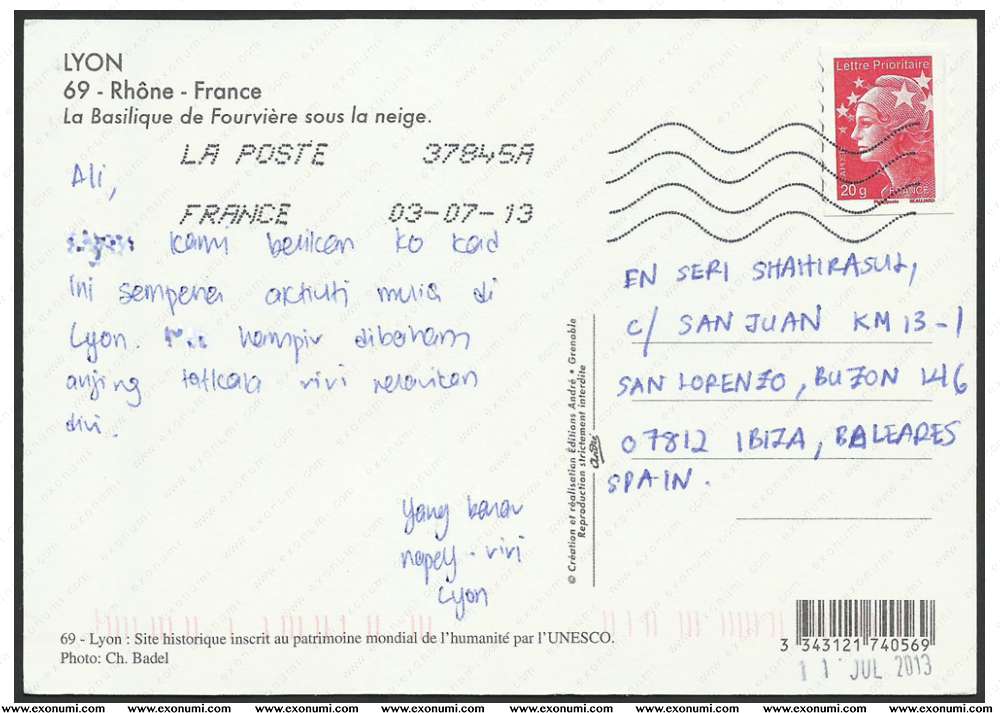 LYON
69 - Rhône - France
La Basilique de Fourvière sous la neige.
LA POSTE 37845A
FRANCE 03-07-13
Lettre Prioritaire
20 g
FRANCE
Ali,
kami berikan ko kad
ini sempena aktiviti mulia di
Lyon. hampir dibaham
anjing tatkala rivi melarikan
diri.
Yang benar
napey - rivi
Lyon
EN SERI SHAHIRASUL,
c/ SAN JUAN KM 13-1
SAN LORENZO, BUZON 146
07812 IBIZA, BALEARES
SPAIN.
© Création et réalisation Éditions André • Grenoble
Reproduction strictement interdite
André
69 - Lyon : Site historique inscrit au patrimoine mondial de l'humanité par l'UNESCO.
Photo: Ch. Badel
3 343121 740569
11 JUL 2013
www.exonumi.com www.exonumi.com www.exonumi.com www.exonumi.com www.exonumi.com www.exonumi.com www.exonumi.com